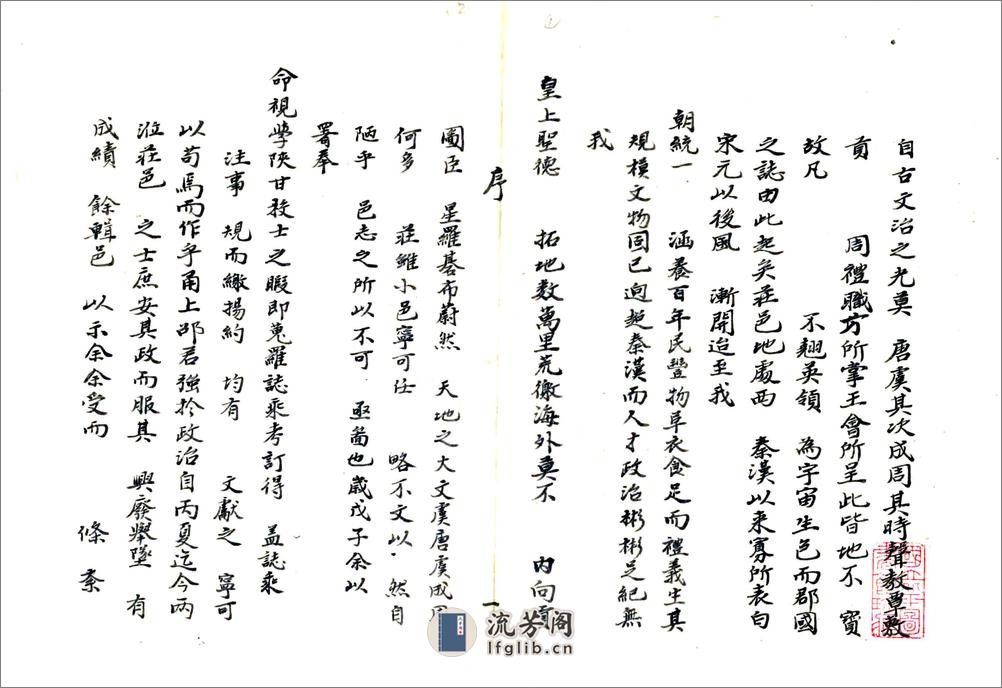 自古文治之尤莫　唐虞其次成周其時聲教覃敷
貢　　周禮職方所掌王會所呈此皆地不　寶
故凡　　　不翅英領　為宇宙生色而郡國
之誌由此起矣莊邑地處西　秦漢以來寡所表白
宋元以後風　漸開迨至我
朝統一　涵養百年民豐物阜衣食足而禮義生其
規模文物固已迥超秦漢而人才政治彬彬足紀無
我
皇上聖德　拓地數萬里荒徼海外莫不　內向
序
一
圖臣　星羅碁布蔚然　天地之大文虞唐虞成周
何多　莊雖小邑寧可任　略不文以　然自
陋乎　邑志之所以不可　亟啚也歲戊子余以
署奉
命視學陝甘校士之暇即蒐羅誌乘考訂得　盖誌乘
注事　規而繳揚約　均有　文獻之　寧可
以苟焉而作乎甬上邵君強於政治自丙夏迄今兩
涖莊邑　之士庶安其政而服其　興廢舉墜　有
成績　餘輯邑　以示余余受而　條紊
流芳阁
lfglib.cn